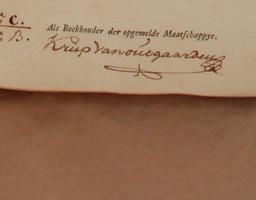 C.
B.
Als Boekhouder der opgemelde Maatschappye.
Krup Van outgaarden